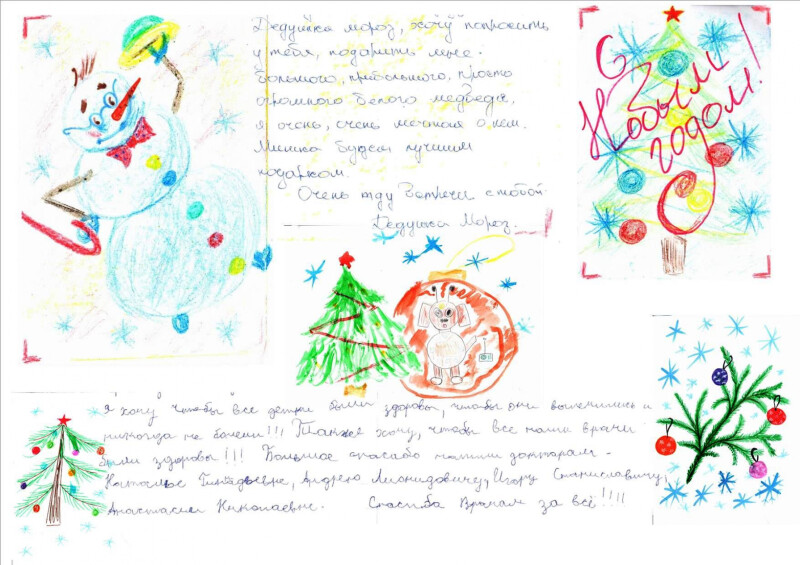 Дедушка мороз, хочу попросить
у тебя, подарить мне.
большого, пребольшого, просто
огромного белого медведя,
я очень, очень мечтаю о нем.
Мишка будет лучшим
подарком.
Очень жду встречи с тобой
Дедушка Мороз.
С
Новым
годом!
Я хочу чтобы все детки были здоровы, чтобы они вылечились и
никогда не болели!!! Также хочу, чтобы все наши врачи
были здоровы!!! Большое спасибо нашим докторам -
Наталье, Андрею Леонидовичу, Игорю Станиславичу,
Анастасии Николаевне. Спасибо Врачам за всё!!!!